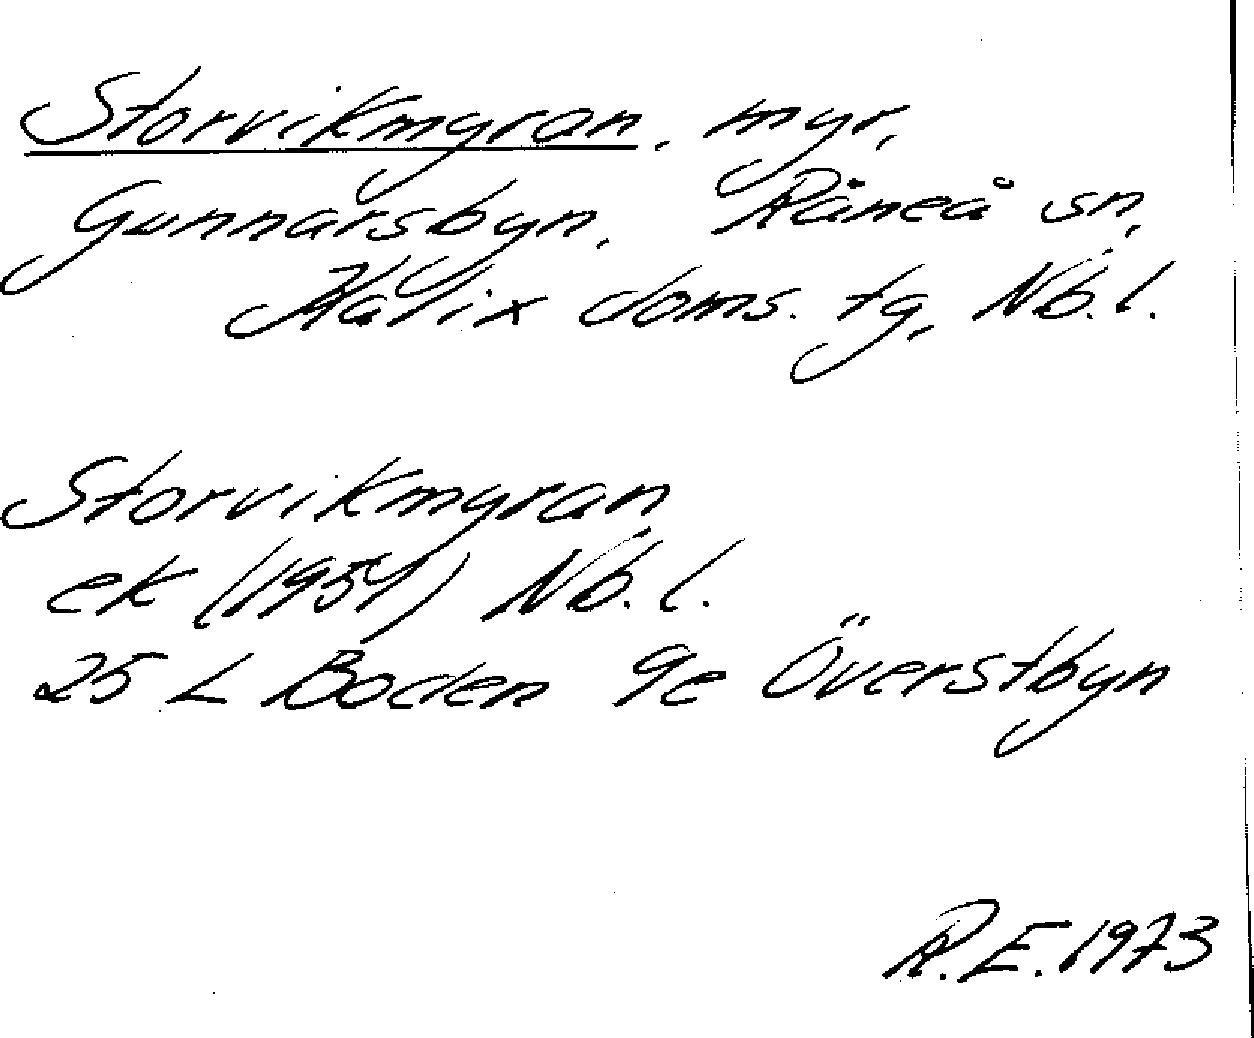 Storvikmyran, myr,
Gunnarsbyn, Råneå sn,
Kalix doms. tg, Nb. l.
Storvikmyran
ek (1954) Nb. l.
25 L Boden 9e Överstbyn
R.E. 1973